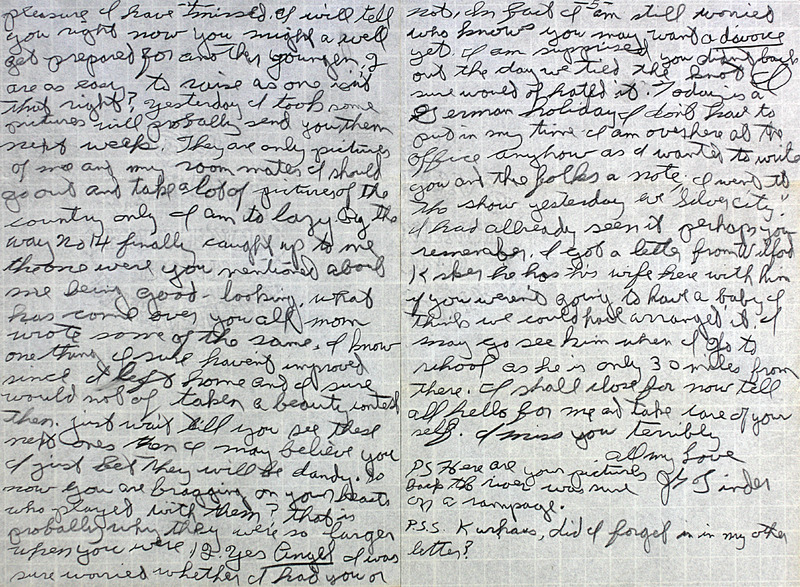 pleasure I have missed. I will tell
you right now you might a well
get prepared for another youngen, 2
are as easy to raise as one isn't
that right? Yesterday I took some
pictures will probally send you them
next week. They are only pictures
of me and my room mates I should
go out and take a lot of pictures of the
country only I am to lazy. By the
way no 14 finally caught up to me
the one were you mentioned about
me being good-looking. What
has come over you all mom
wrote some of the same. I know
one thing I sure haven't improved
since I left home and I sure
would not of taken a beauty contest
then. just wait till you see these
next ones then I may believe you
I just bet they will be dandy. So
now you are bragging on your
who played with them? that is
probally why they were so larger
when you were 12. Yes Angel I was
sure worried whether I had you or
-5-
not, In fact I am still worried
who knows you may want a divorce
yet. I am surprised you didn't back
out the day we tied the knot I
sure would of hated it. Today is a
German holiday I don't have to
put in my time I am over here at the
office anyhow as I wanted to write
you and the folks a note, I went to
the show yesterday eve "Silver City".
I had allready seen it perhaps you
remember. I got a letter from Wilford
he has his wife here with him
if you weren't going to have a baby I
think we could had arranged it. I
may go see him when I go to
school as he is only 30 miles from
there. I shall close for now tell
all hello for me and take care of your
self. I miss you terribly
all my love
PS Here are your pictures
back the river was sure
on a rampage.
P.S.S. Kurhaus, did I forget in in my other
letter?